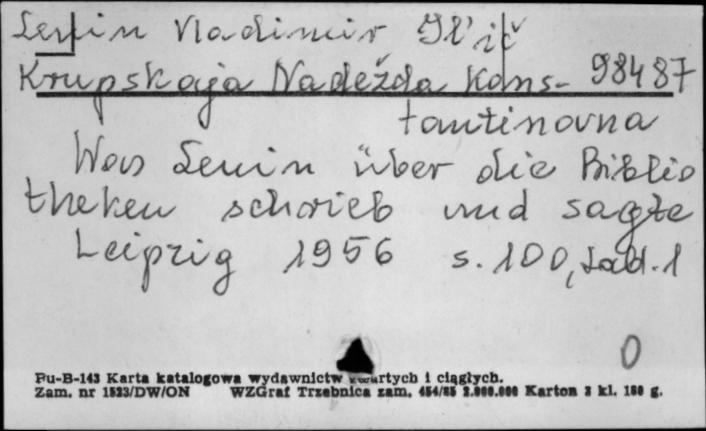 Lenin Vladimir Il'ič
Krupskaja Nadežda Kons- 98487
tantinovna
Was Lenin über die Biblio
theken schrieb und sagte
Leipzig 1956 s. 100, tabl. 1
0
Pu-B-143 Karta katalogowa wydawnictw zwartych i ciągłych.
Zam. nr 1523/DW/ON WZGraf Trzebnica zam. 454/85 2.000.000 Karton 3 kl. 180 g.